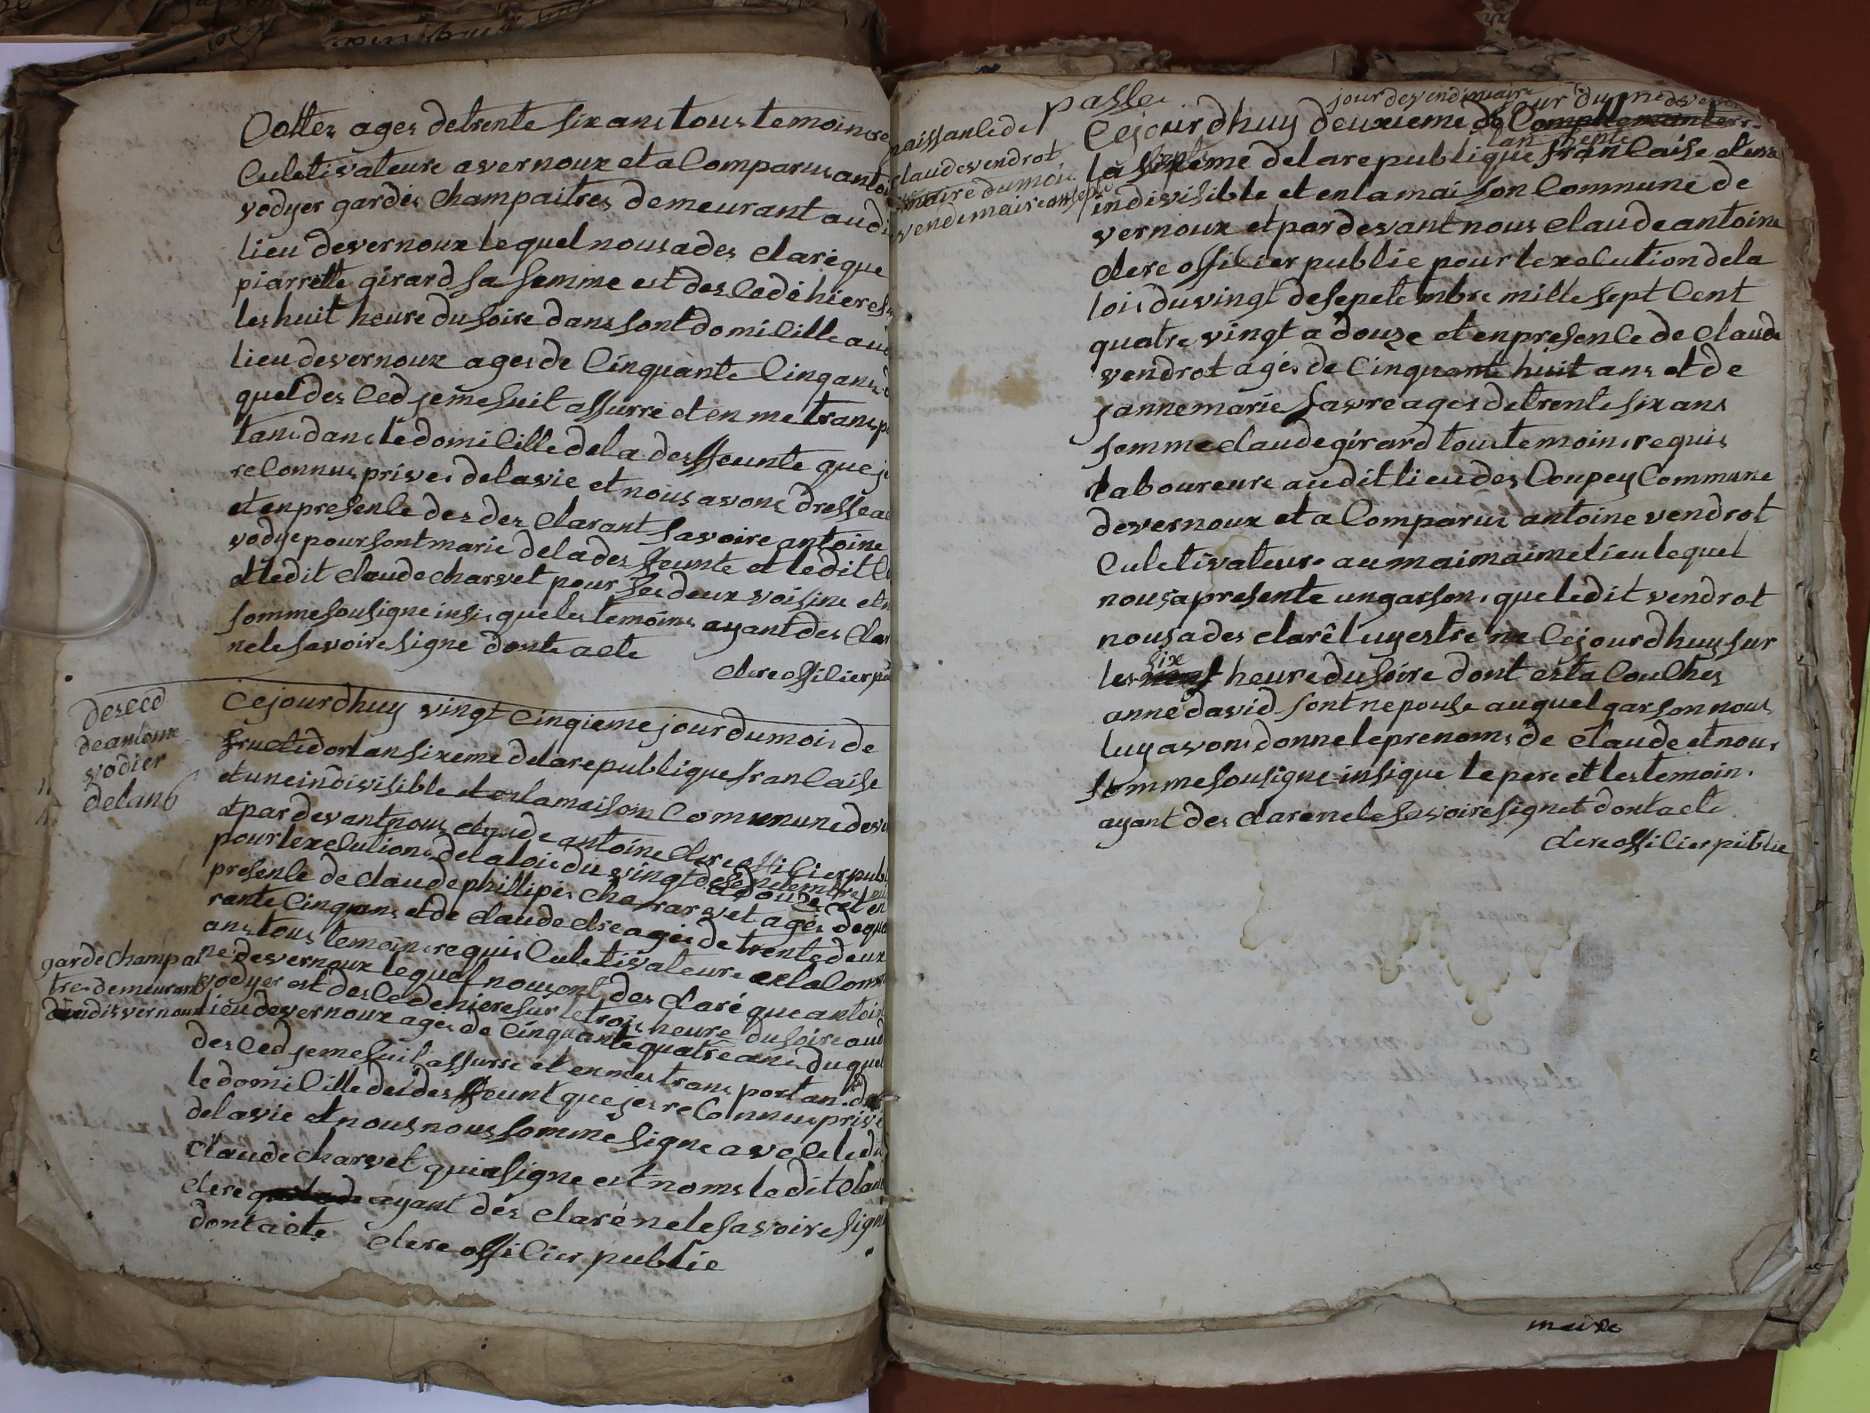 Cottes ages detrente six ans tous temoins re
Culetivateure a vernoux et a Comparus antoi
vodyer gardes Champaitres demeurant audi
lieu devernoux lequel nous a des clareque
piarrette girard sa femme est des Cede hiere
les huit heure du soire dans sont domicille au
lieu devernoux ages de Cinquante Cinq ans
quel des Ced jeme suit assurre et en me trans po
tans dans le domicille dela desffeunte que je
reConnus prives delavie et nous avons dresse a
et en presence des des Clarant savoire antoine
vodye pour sont marie dela des feunte et ledit Cl
et ledit claude charvet pour ses deux voisins et n
somme sousigne insis que les temoins ayant des Clar
nele savoire signe dont acte
clere officier pu
deseed
de antoine
vodier
delan 6
Cejourdhuy vingt Cinqieme jour du mois de
fructidor lan sixeme dela republique francaise
et une indivisible et en la maison Commune deve
et par devant nous claude antoine clere officier publ
pour lexecutions dela lois du vingt de septembre mi
a douze et en
presence de claude phillipes charvet ages de qua
rante Cinq ans et de claude clre ages de trente deux
ans tous temoins requis Culetivateure en la Comm
ne devernoux lequel nous ont des claré que antoin
garde champai
tres demeurant
audis vernoux
vodyer est des Cede hiere sur le trois heure du soire aud
lieu devernoux ages de Cinquante quatre ans duquel
des Ced jeme suit assurre et en mes trans portan dans
le domicille dudes ffeunt que jes reConnus prive
delavie et nous nous somme signe avec le di
claude charvet qui a signe est noms ledit Clau
clere ayant des claré nele savoire sign
dont acte clere officier publie
naissance de
claude vendrot
vendemaire an sept
passe
jour des vendemaire
Cejourdhuy deuxieme
lan sept
la sixeme dela republique francaise et une
indivisible et en la maison Commune de
vernoux et par devant nous claude antoine
clere officier publie pour lexecution dela
lois du vingt desepetembre mille sept Cent
quatre vingt a douze et en presence de claude
vendrot ages de Cinquante huit ans et de
jannemarie favre ages detrente six ans
femme claude girard tous temoins requis
laboureure audit lieu des Coupey Commune
devernoux et a Comparus antoine vendrot
Culetivateure au mai maime lieu lequel
nous a presente un garson, que ledit vendrot
nous a des claré luy estre ne Cejourdhuy sur
les six heure du soire dont esta Couches
anne david sont nepouse auquel garson nous
luy avons donne le prenoms de claude et nous
somme sousigne insi que le pere et les temoin.
ayant des clare nele savoire signet dont acte
clere officier publie
maire